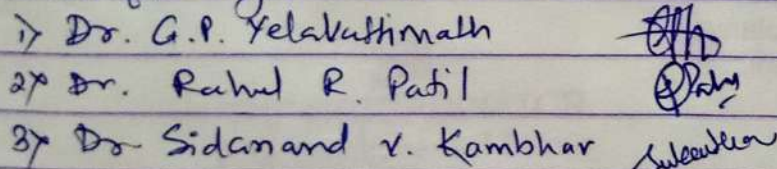 1) Dr. G.P. Yelavattimath
2) Dr. Rahul R. Patil
3) Dr Sidanand V. Kambhar